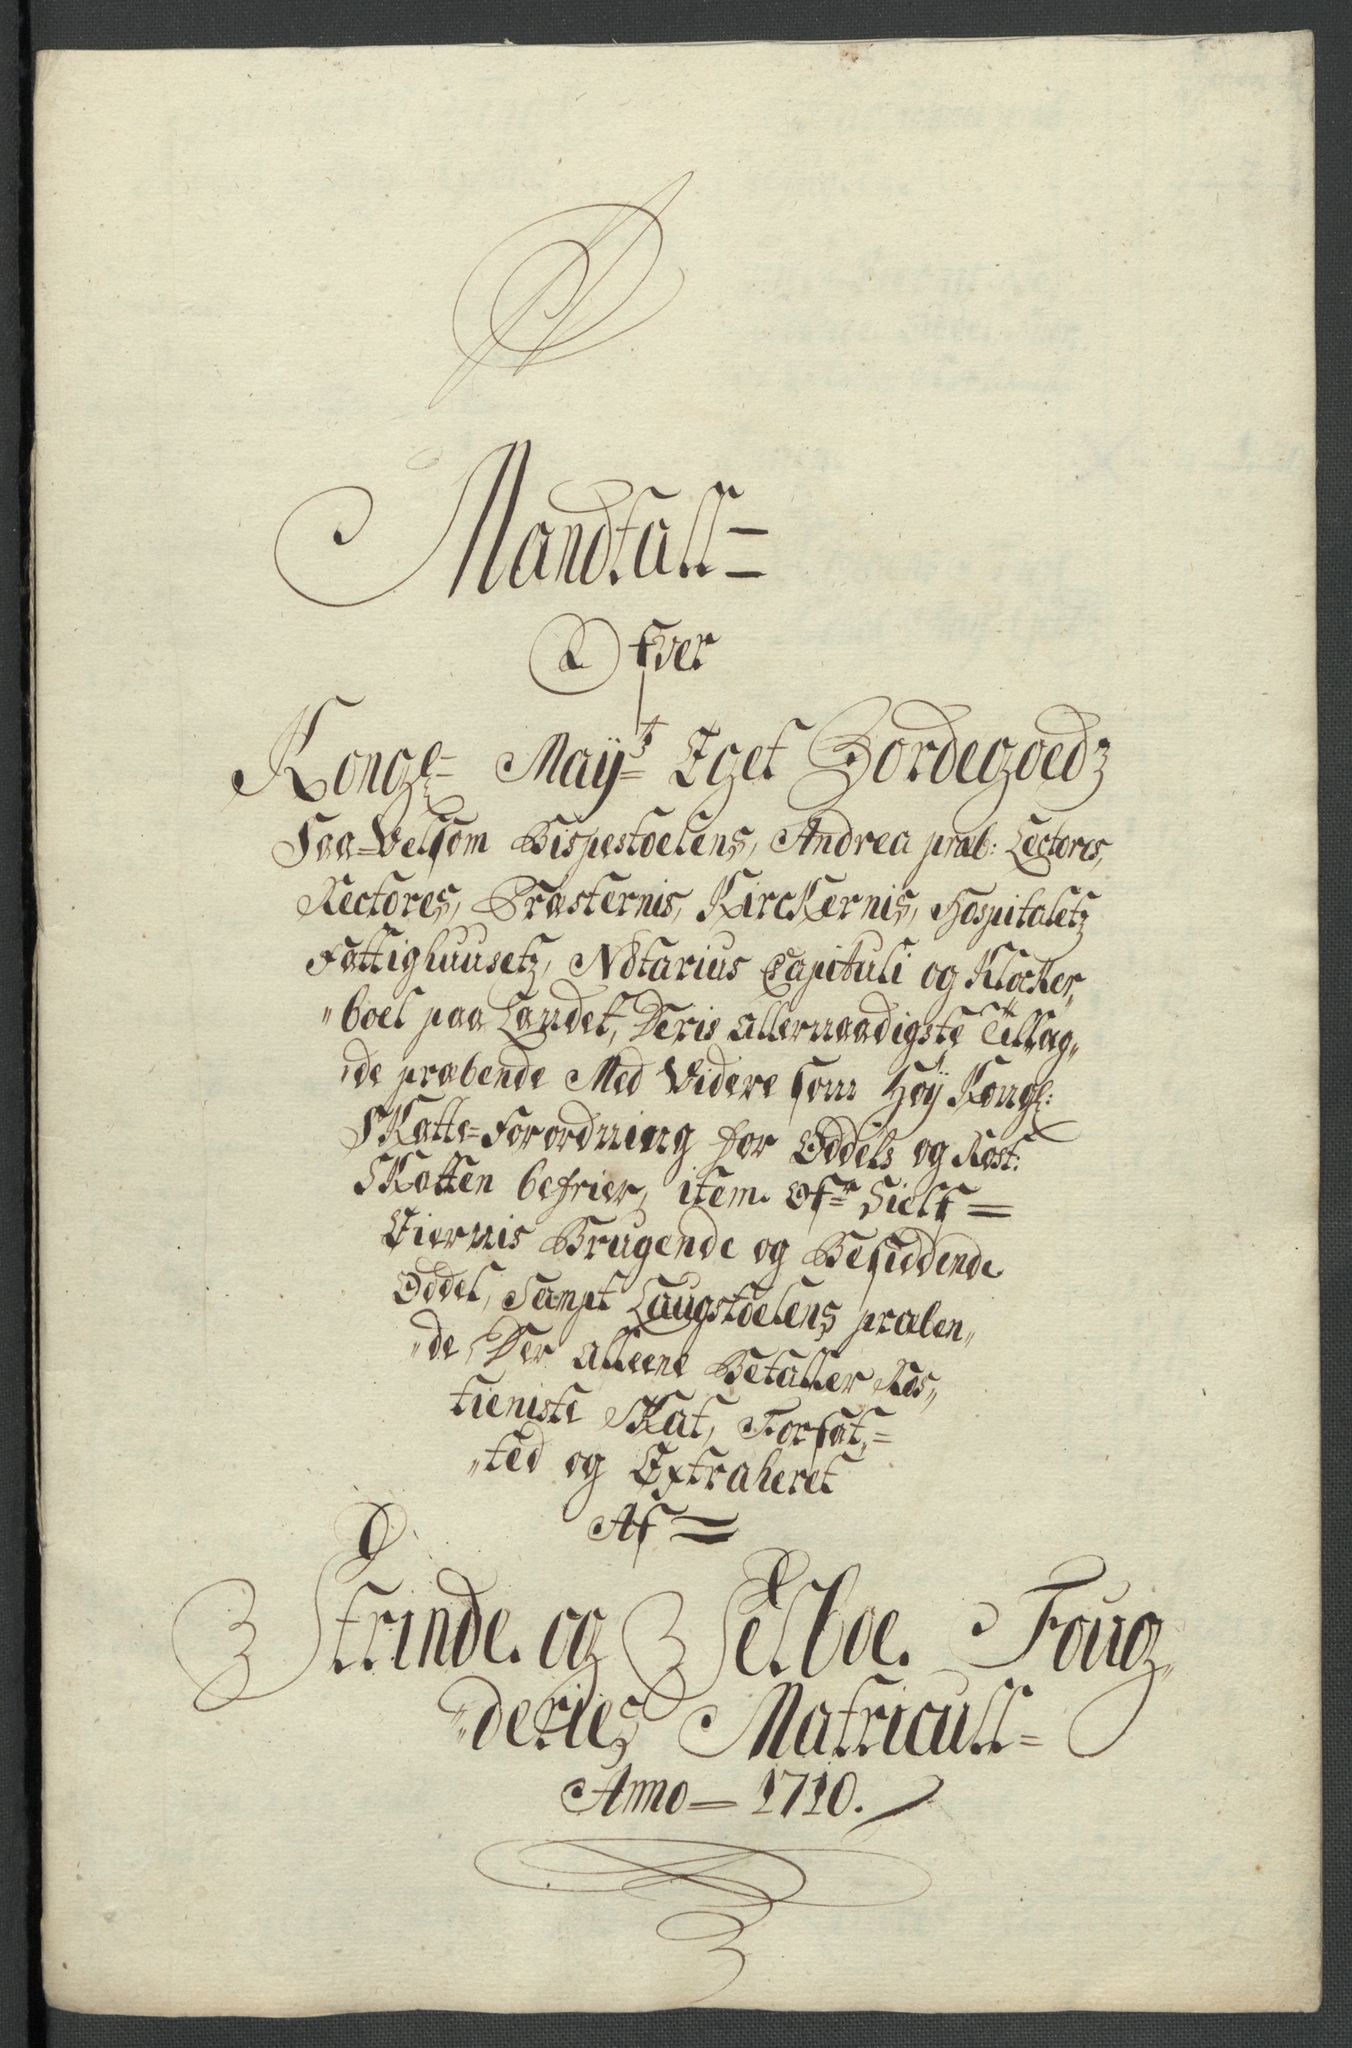 Mandtall=
Ofver
Kongl= Mayts= Eget Bordegoedz
Saa=Velsom Bispestoelens, Andrea præb: Lectores,
Rectores, Præsternis, Kirckernis, Hospitaletz
Fattighuusetz, Notarius Capituli og Klocker,,
"boel paa Landet, Deris Allernaadigste Tillag,,
"de præbende Med Videre som Høÿ Kongl:
Skatte=Forordning for Oddels og Rost:
Skatten befrier, item. Ofr Sielf=
Eiernis Brugende og Besiddende
Oddel, Sampt Laugstoelens præben,,
"de Der Alleene Betaller Ros,,
tieniste Skat, Forfat,=
"ted og Extraheret
Af=
Strinde og Selboe Foug,,
"deries Matricull=
Anno= 1710.